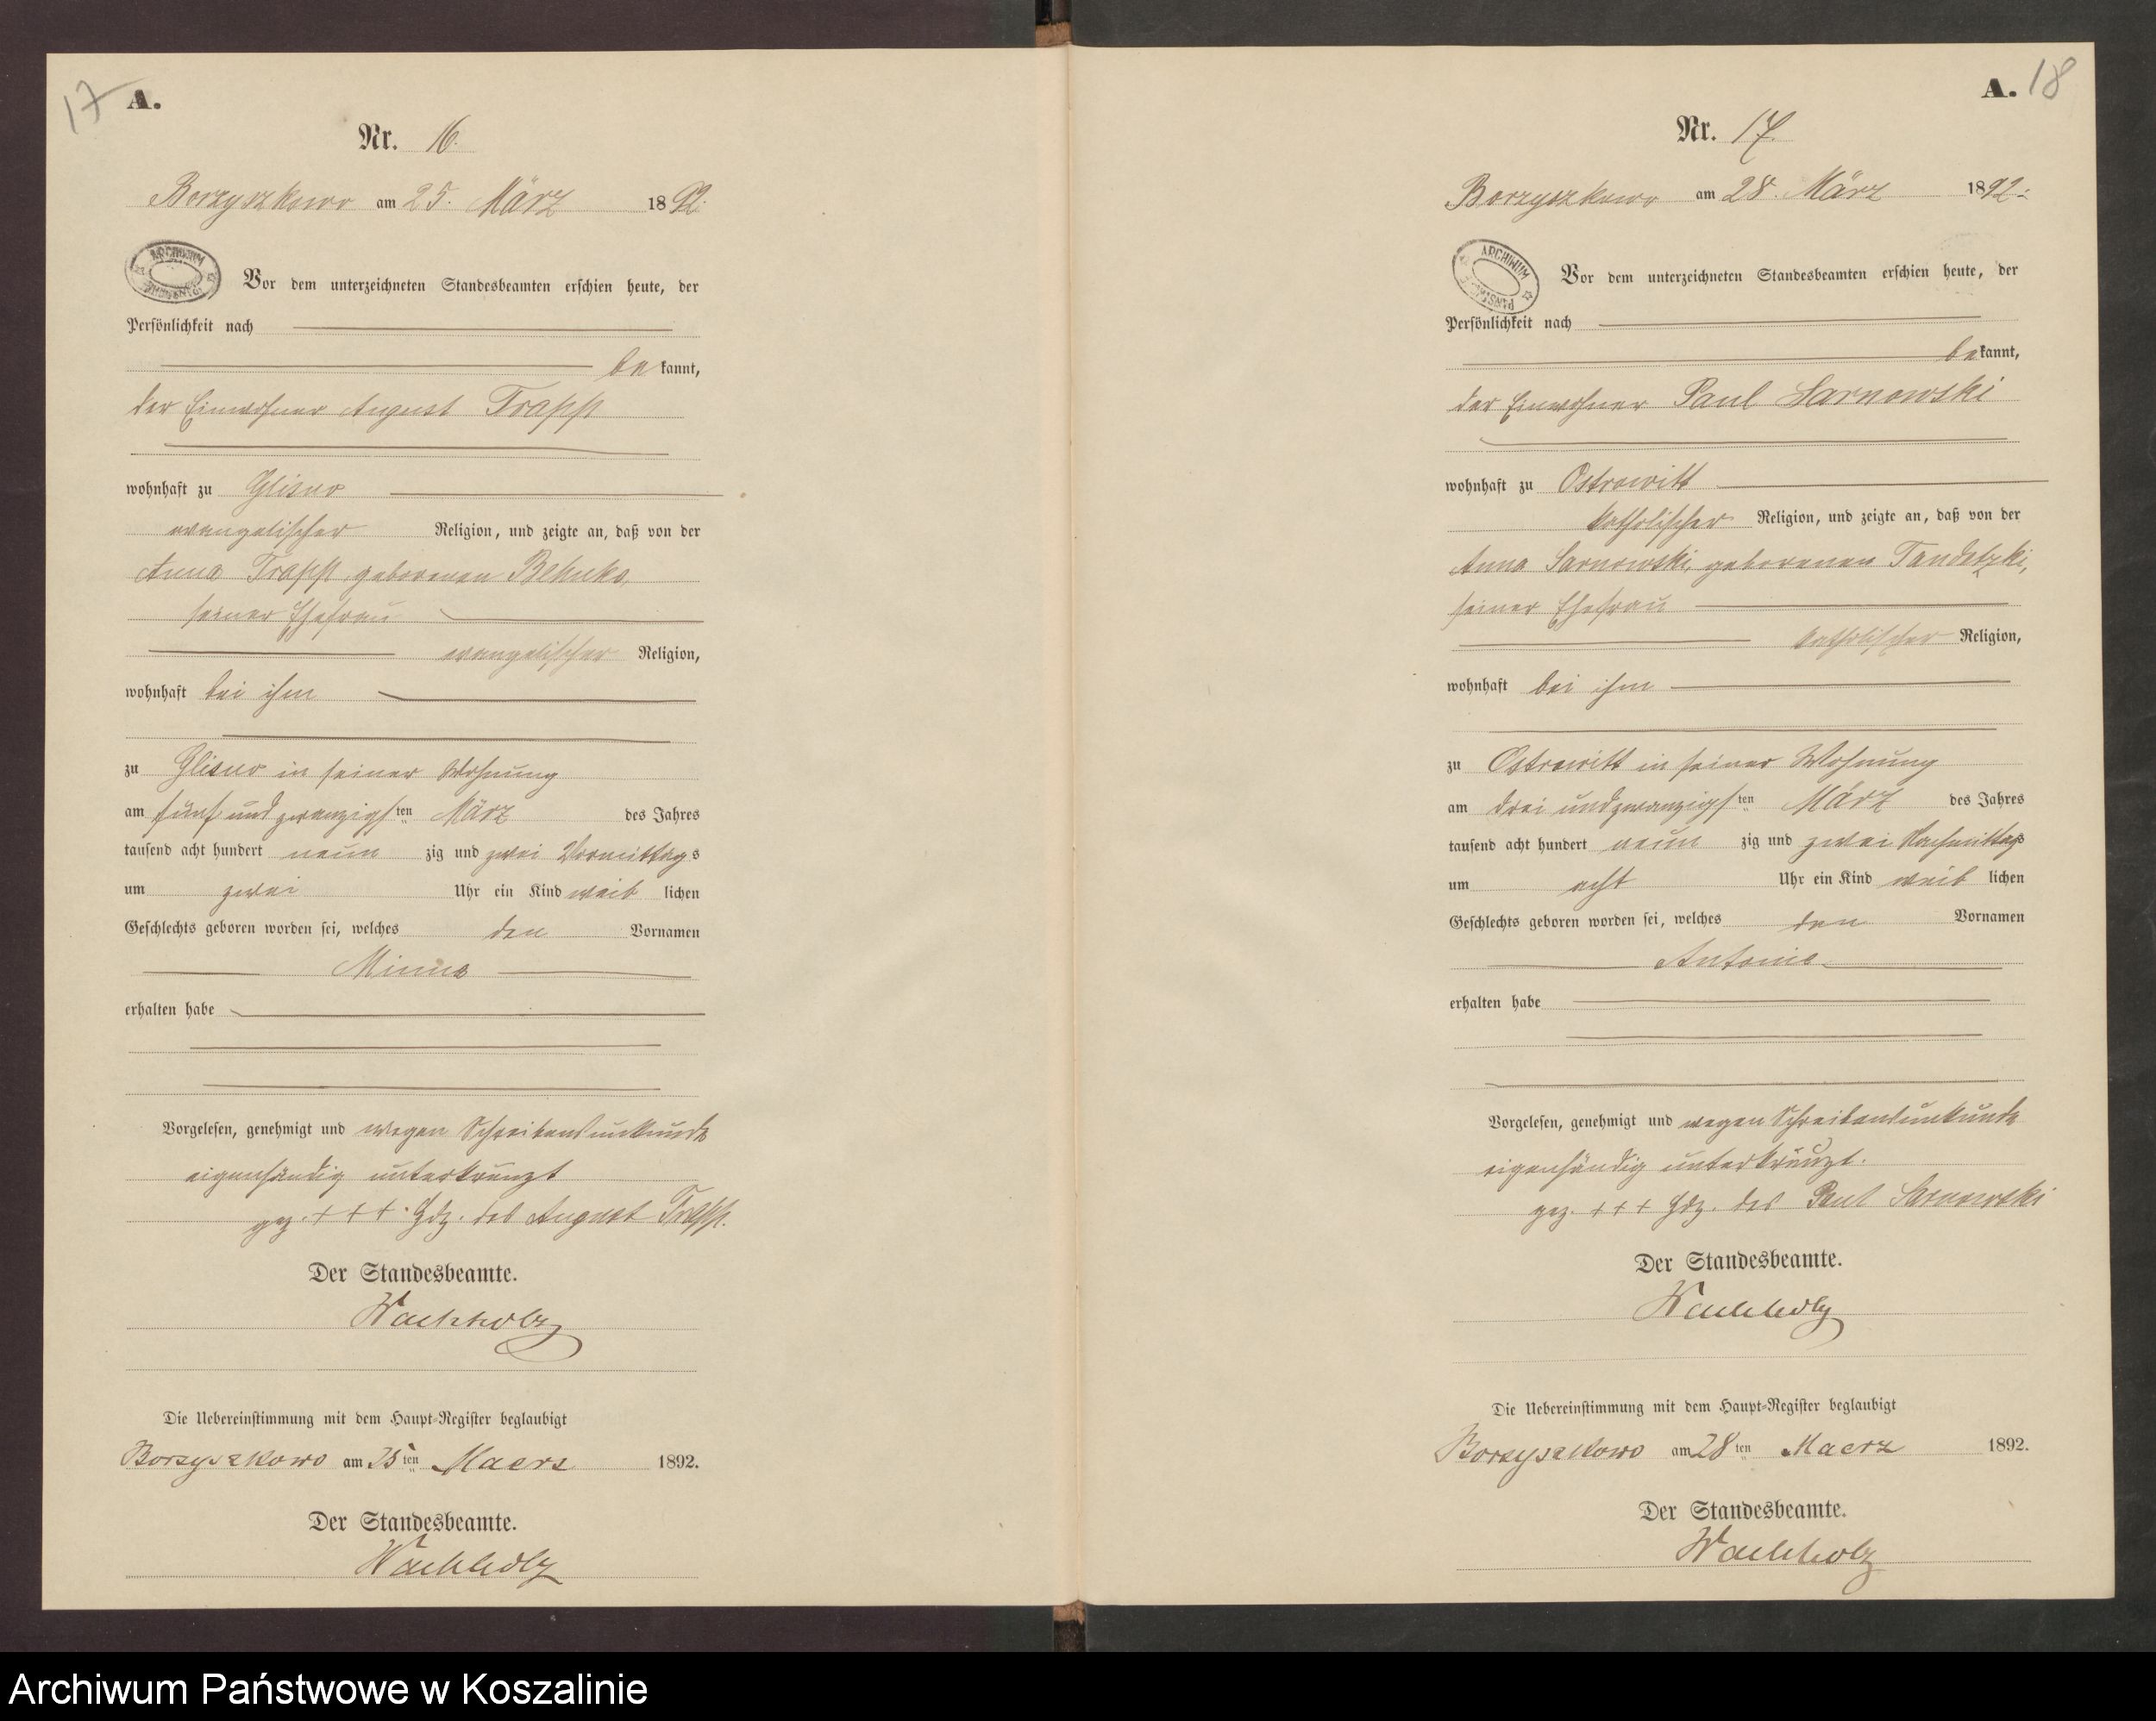 17
A.
Nr. 16.
Borzyszkowo am 25. März 1892.
ARCHIWUM
Vor dem unterzeichneten Standesbeamten erschien heute, der
Persönlichkeit nach
bekannt,
der Einwohner August Trapp
wohnhaft zu Glisno
evangelischer Religion, und zeigte an, daß von der
Anna Trapp, geborenen Behnke,
seiner Ehefrau
evangelischer Religion,
wohnhaft bei ihm
zu Glisno in seiner Wohnung
am fünf und zwanzigsten März des Jahres
tausend acht hundert neunzig und zwei Vormittags
um zwei Uhr ein Kind weiblichen
Geschlechts geboren worden sei, welches den Vornamen
Minna
erhalten habe
Vorgelesen, genehmigt und wegen Schreibensunkunde
eigenhändig unterkreuzt
gez. +++ Hdz. des August Trapp.
Der Standesbeamte.
Wachholz
Die Uebereinstimmung mit dem Haupt-Register beglaubigt
Borzyszkowo am 25ten Maerz 1892.
Der Standesbeamte.
Wachholz
A. 18
Nr. 17.
Borzyszkowo am 28. März 1892.
ARCHIWUM
Vor dem unterzeichneten Standesbeamten erschien heute, der
Persönlichkeit nach
bekannt,
der Einwohner Paul Sarnowski
wohnhaft zu Ostrowitt
katholischer Religion, und zeigte an, daß von der
Anna Sarnowski, geborenen Tandetzki,
seiner Ehefrau
katholischer Religion,
wohnhaft bei ihm
zu Ostrowitt in seiner Wohnung
am drei und zwanzigsten März des Jahres
tausend acht hundert neunzig und zwei Nachmittags
um acht Uhr ein Kind weiblichen
Geschlechts geboren worden sei, welches den Vornamen
Antonie
erhalten habe
Vorgelesen, genehmigt und wegen Schreibensunkunde
eigenhändig unterkreuzt.
gez. +++ Hdz. des Paul Sarnowski
Der Standesbeamte.
Wachholz
Die Uebereinstimmung mit dem Haupt-Register beglaubigt
Borzyszkowo am 28ten Maerz 1892.
Der Standesbeamte.
Wachholz
Archiwum Państwowe w Koszalinie